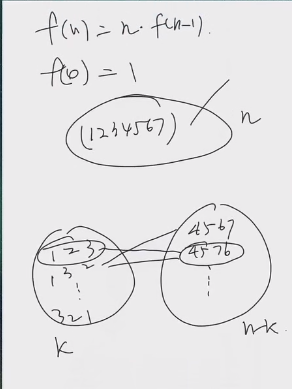 f(n) = n · f(n-1).
f(0) = 1
(1234567)
n
1 2 3
1 3 2
⋮
3 2 1
k
4567
4576
⋮
n-k.